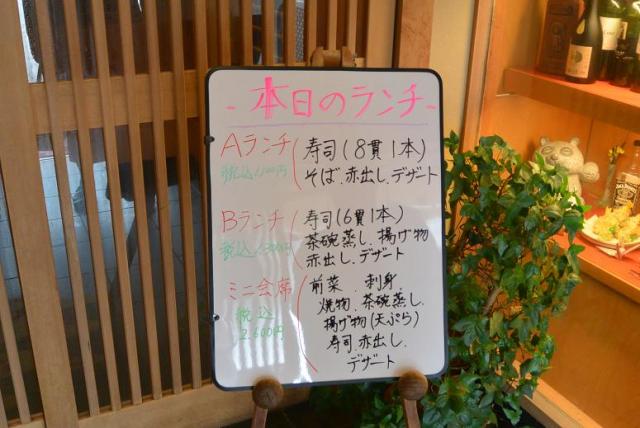 本日のランチ
Aランチ
税込1,100円
寿司(8貫1本)
そば、赤出し、デザート
Bランチ
税込1,300円
寿司(6貫1本)
茶碗蒸し、揚げ物
赤出し、デザート
ミニ会席
税込
2,600円
前菜、刺身
焼物、茶碗蒸し、
揚げ物(天ぷら)
寿司、赤出し、
デザート